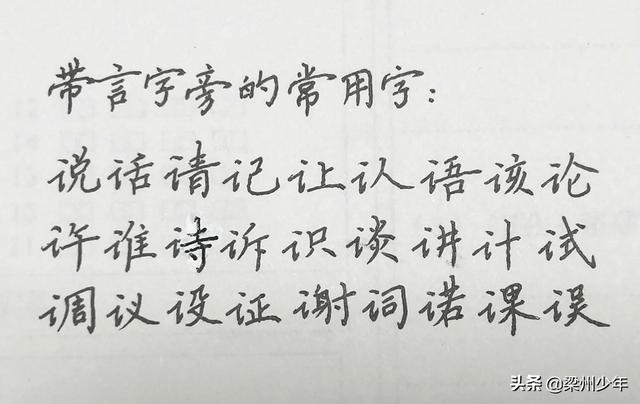 带言字旁的常用字：
说话请记让认语该论
许谁诗诉识谈讲计试
调议设证谢词诺课误
头条 @梁州少年